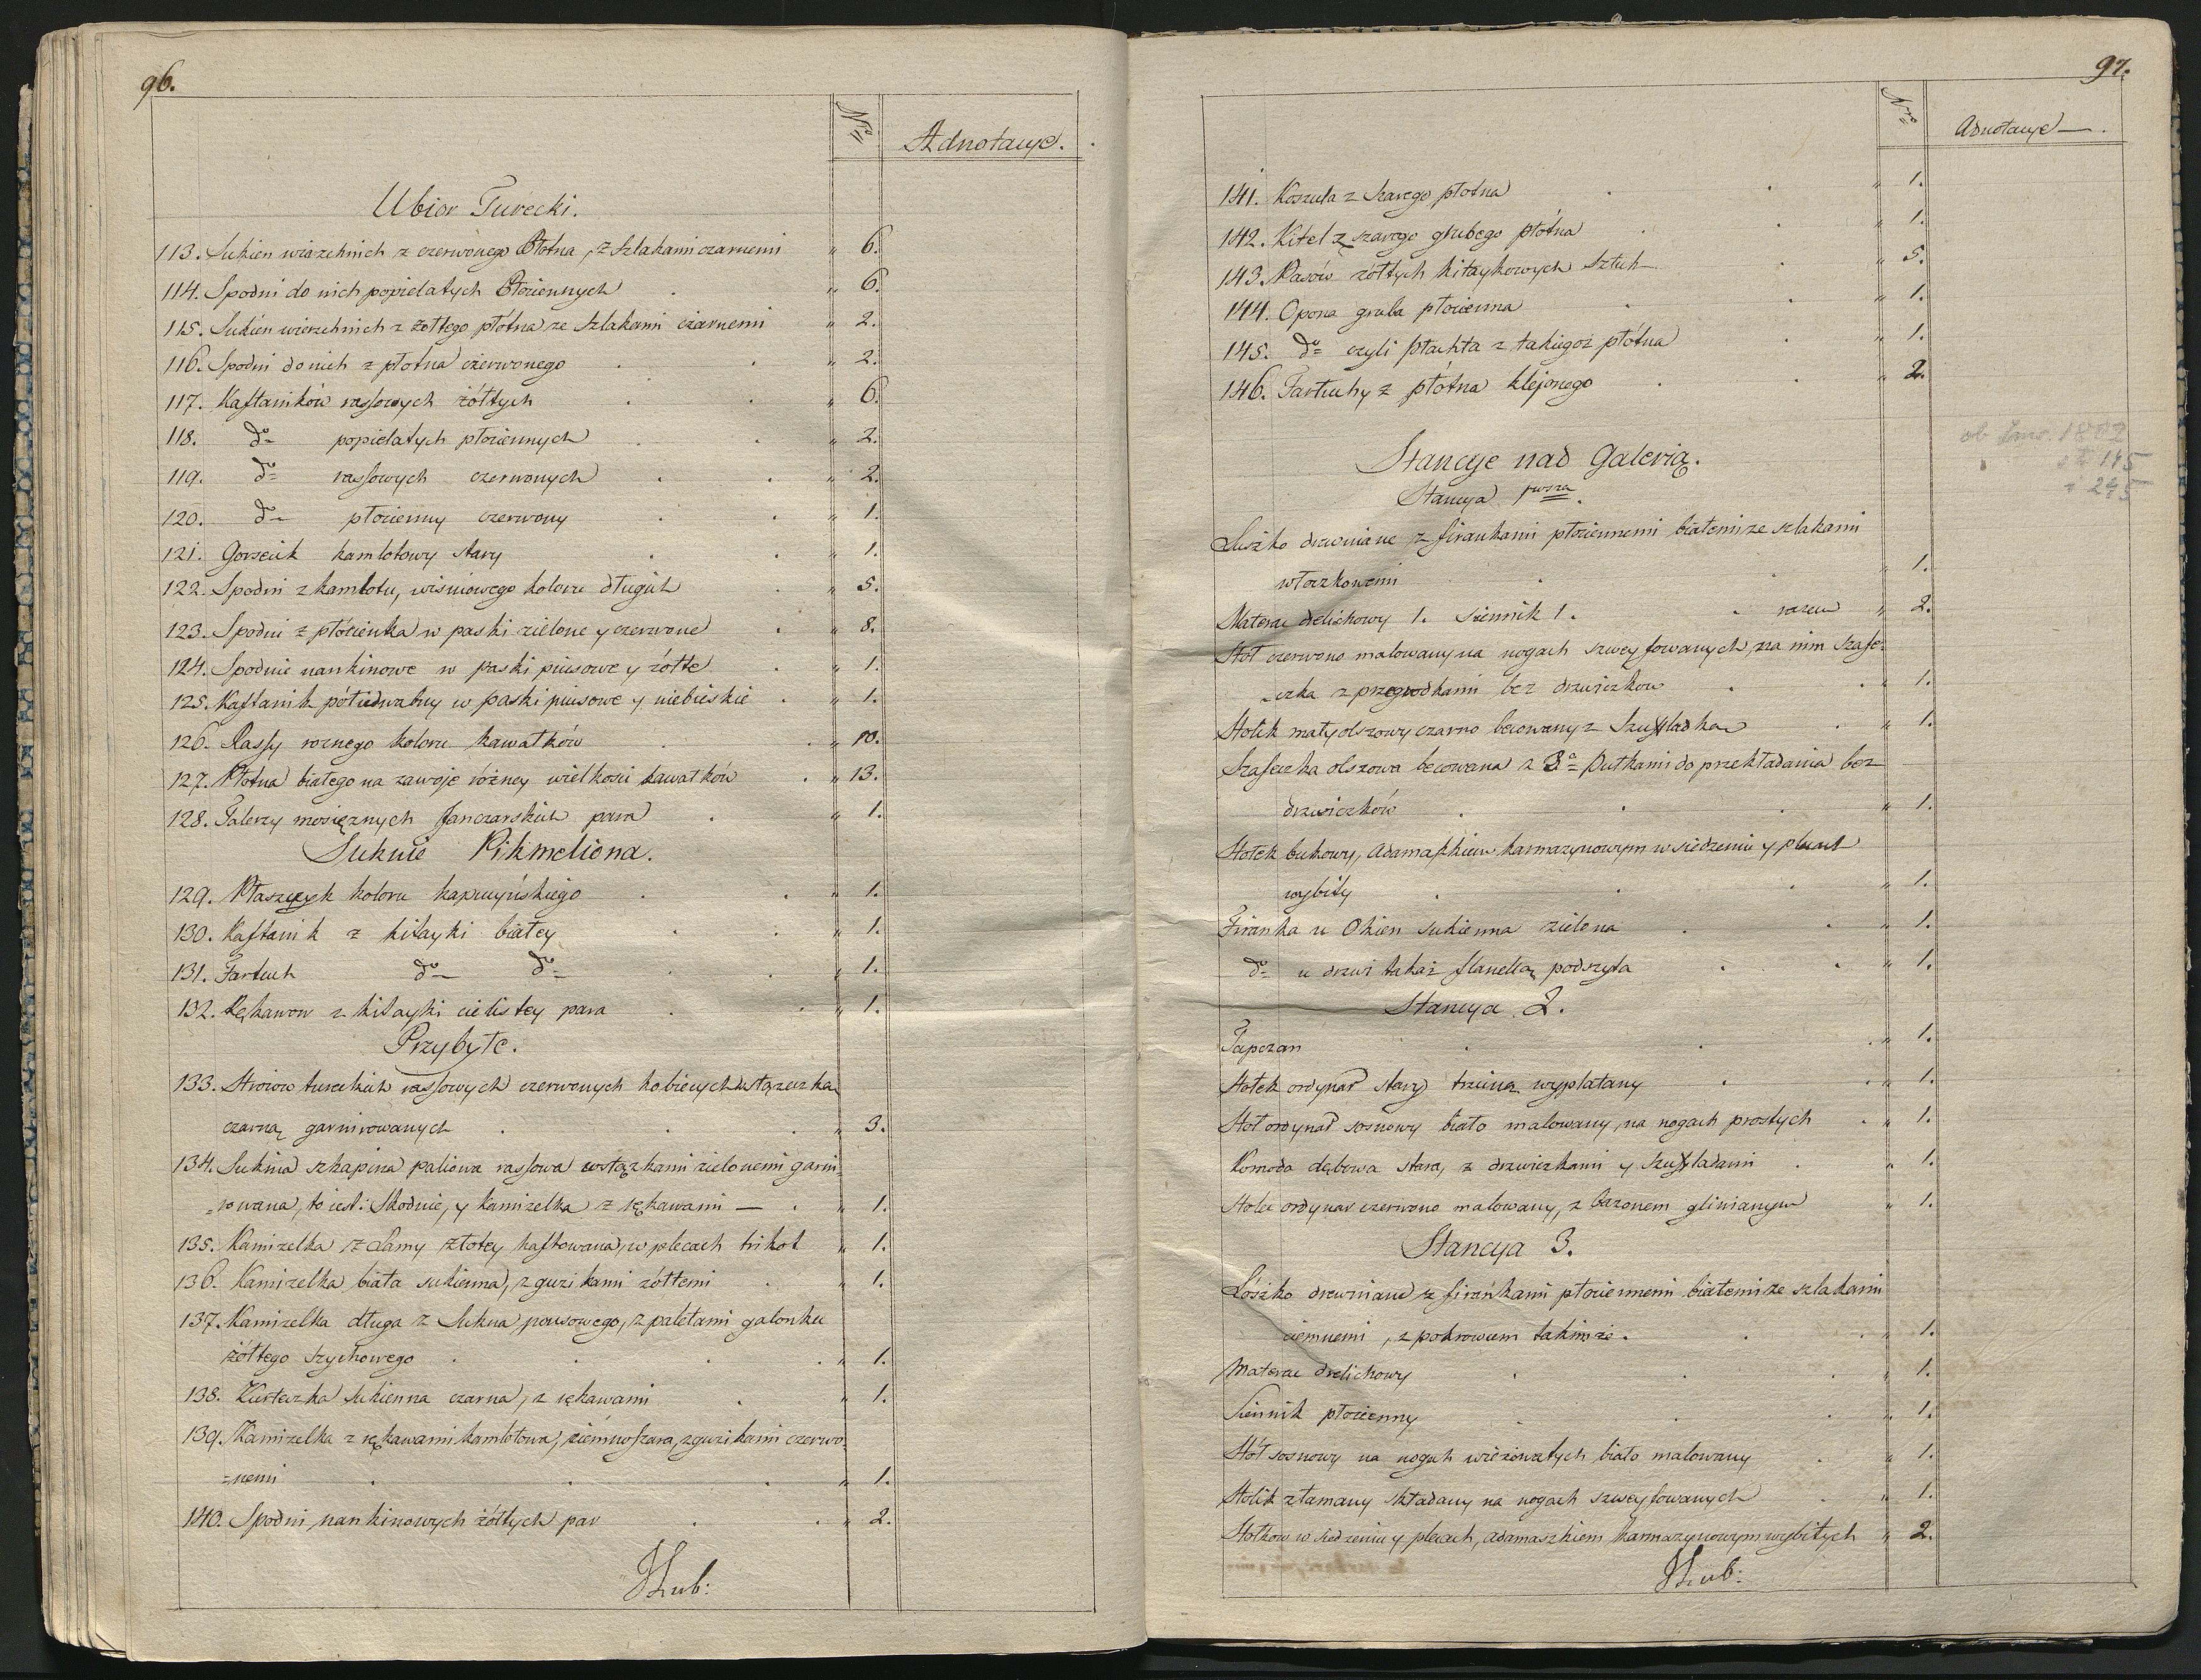 96.
Nro
Adnotacye.
Ubior Turecki.
113. Sukien wiazchnich z czerwonego Płotna, z Szlakami czarnemi „ 6.
114. Spodni do nich popielatych Płociennych . „ 6.
115. Sukień wierzchnich z żołtego płótna ze Szlakami czarnemi „ 2.
116. Spodni do nich z płotna czerwonego . . „ 2.
117. Kaftaników rassowych żółtych . . „ 6.
118. do popielatych płociennych . . „ 2.
119. do rassowych czerwonych . . „ 2.
120. do płocienny czerwony . . „ 1.
121. Gorsecik kamlotowy stary . . „ 1.
122. Spodni z kamlotu, wiśniowego koloru długich . „ 5.
123. Spodni z płócienka w paski zielone y czerwone . „ 8.
124. Spodnie nankinowe w paski piusowe y żółte . „ 1.
125. Kaftanik półiedwabny w paski piusowe y niebieskie . „ 1.
126. Rassy roznego koloru kawałków . . „ 10.
127. Płotna białego na zawoje różney wielkosci kawałków . „ 13.
128. Talerzy mosiężnych Janczarskich para . „ 1.
Suknie Pikmeliona.
129. Płaszczyk koloru kapucyńskiego . . „ 1.
130. Kaftanik z kitayki białey . . „ 1.
131. Fartuch do do . . „ 1.
132. Rękawow z kitayki cielistey para . . „ 1.
Przybyłe.
133. Stroiow tureckich rassowych czerwonych kobiecych wstążeczką
czarną garnirowanych . . . „ 3.
134. Suknia szkapina paliowa rassowa wstążkami zielonemi garni„
„rowana, to iest: Skodnie, y kamizelka z rękawami — . „ 1.
135. Kamizelka z Lamy złotey haftowana, w plecach trikot „ 1.
136. Kamizelka biała sukienna, z guzikami żółtemi . „ 1.
137. Kamizelka długa z Sukna ponsowego, z paletami galonku
żółtego szychowego . . . . „ 1.
138. Kurteczka sukienna czarna, z rękawami . „ 1.
139. Kamizelka z rękawami kamlotowa, ciemnoszara, z guzikami czerwo„
=nemi . . . „ 1.
140. Spodni nankinowych żółtych par . . „ 2.
97.
Nro
Adnotacye — .
141. Koszula z Szarego płotna . . „ 1.
142. Kitel z szarego grubego płótna . . „ 1.
143. Pasów żółtych kitaykowych Sztuk . „ 5.
144. Opona gruba płocienna . . „ 1.
145. do czyli płachta z takiegoż płótna . „ 1.
146. Fartuchy z płótna klejonego . . „ 2.
1882
145
245
Stancye nad Galerią.
Stancya pwsza.
Łuszko drewniane z firankami płociennemi białemi ze szlakami
włoczkowemi . . „ 1.
Materac drelichowy 1. siennik 1. . razem „ 2.
Stoł czerwono malowany na nogach szweyfowanych, na nim szafe„
„czka z przegrodkami bez drzwiczkow . . „ 1.
Stolik mały olszowy czarno becowany z Szufladką . „ 1.
Szafeczka olszowa becowana z 3ą Pułkami do przekładania bez
drzwiczków . . . „ 1.
Stołek bukowy, Adamaszkiem karmazynowym w siedzeniu y plecach
wybity . . . „ 1.
Firanka u Okien sukienna zielona . . „ 1.
do u drzwi takaż flanellą podszyta . . „ 1.
Stancya 2.
Tapczan . . . „ 1.
Stołek ordynar stary trzciną wyplatany . . „ 1.
Stoł ordynar sosnowy biało malowany, na nogach prostych . „ 1.
Komoda dębowa stara, z drzwiczkami y szufladami . „ 1.
Stolec ordynar czerwono malowany, z bazonem glinianym „ 1.
Stancya 3.
Łószko drewniane z firankami płociennemi białemi ze szlakami
ciemnemi, z pokrowcem takimże. . . „ 1.
Materac drelichowy . . . „ 1.
Siennik płocienny . . „ 1.
Stół sosnowy na nogach wieżowatych biało malowany . „ 1.
Stolik złamany składany na nogach szweyfowanych . „ 1.
Stołkow w siedzeniu y plecach, adamaszkiem karmazynowym wybitych „ 2.